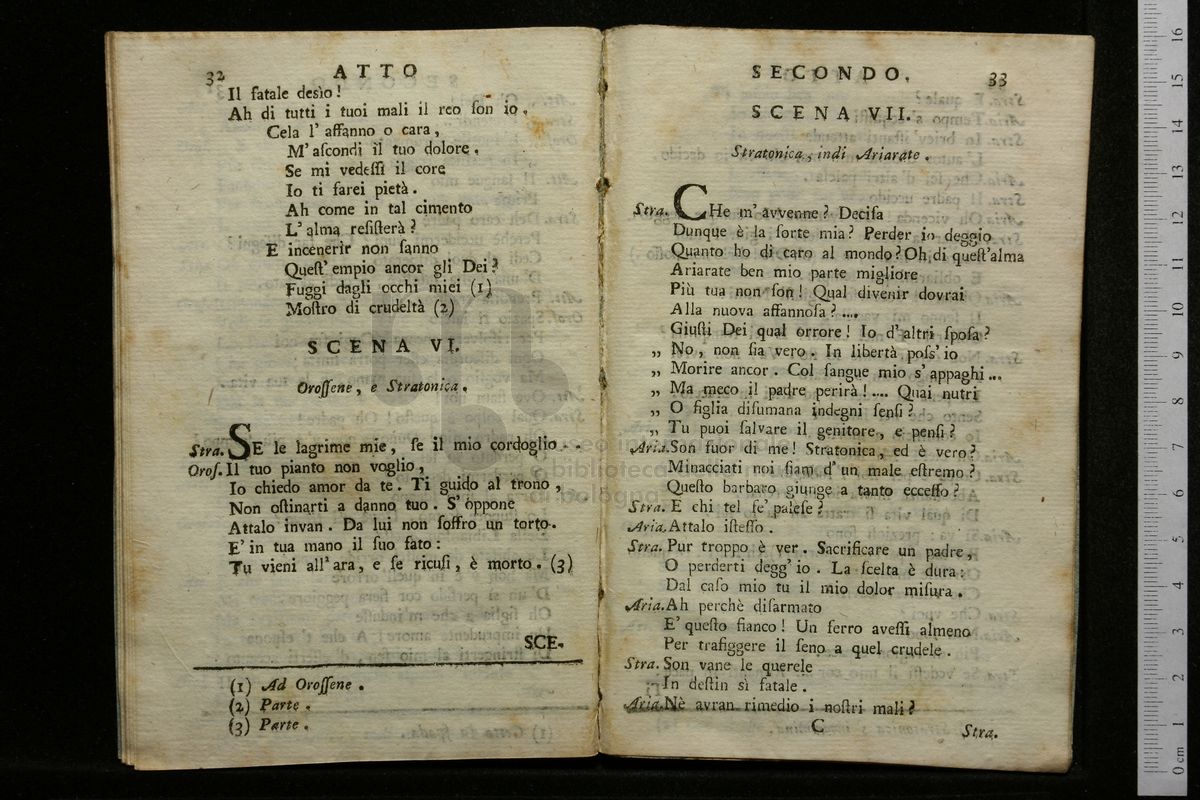 32 ATTO
Il fatale desìo!
Ah di tutti i tuoi mali il reo ſon io.
Cela l' affanno o cara,
M' aſcondi il tuo dolore.
Se mi vedeſſi il core
Io ti farei pietà.
Ah come in tal cimento
L' alma reſiſterà?
E incenerir non ſanno
Queſt' empio ancor gli Dei?
Fuggi dagli occhi miei (1)
Moſtro di crudeltà (2)
SCENA VI.
Oroſſene, e Stratonica.
Stra. SE le lagrime mie, ſe il mio cordoglio . .
Oroſ. Il tuo pianto non voglio,
Io chiedo amor da te. Ti guido al trono,
Non oſtinarti a danno tuo. S' oppone
Attalo invan. Da lui non ſoffro un torto.
E' in tua mano il ſuo fato:
Tu vieni all' ara, e ſe ricuſi, è morto. (3)
SCE-
(1) Ad Oroſſene.
(2) Parte.
(3) Parte.
SECONDO. 33
SCENA VII.
Stratonica, indi Ariarate.
Stra. CHe m' avvenne? Deciſa
Dunque è la ſorte mia? Perder io deggio
Quanto ho di caro al mondo? Oh di queſt'alma
Ariarate ben mio parte migliore
Più tua non ſon! Qual divenir dovrai
Alla nuova affannoſa? ....
Giuſti Dei qual orrore! Io d' altri ſpoſa?
„ No, non ſia vero. In libertà poſs' io
„ Morire ancor. Col ſangue mio s' appaghi ...
„ Ma meco il padre perirà! .... Quai nutri
„ O figlia diſumana indegni ſenſi?
„ Tu puoi ſalvare il genitore, e penſi?
Aria. Son fuor di me! Stratonica, ed è vero?
Minacciati noi ſiam d' un male eſtremo?
Queſto barbaro giunge a tanto ecceſſo?
Stra. E chi tel fe' paleſe?
Aria. Attalo iſteſſo.
Stra. Pur troppo è ver. Sacrificare un padre,
O perderti degg' io. La ſcelta è dura:
Dal caſo mio tu il mio dolor miſura.
Aria. Ah perchè diſarmato
E' queſto fianco! Un ferro aveſſi almeno
Per trafiggere il ſeno a quel crudele.
Stra. Son vane le querele
In deſtin sì fatale.
Aria. Nè avran rimedio i noſtri mali?
C Stra.
0 cm 1 2 3 4 5 6 7 8 9 10 11 12 13 14 15 16